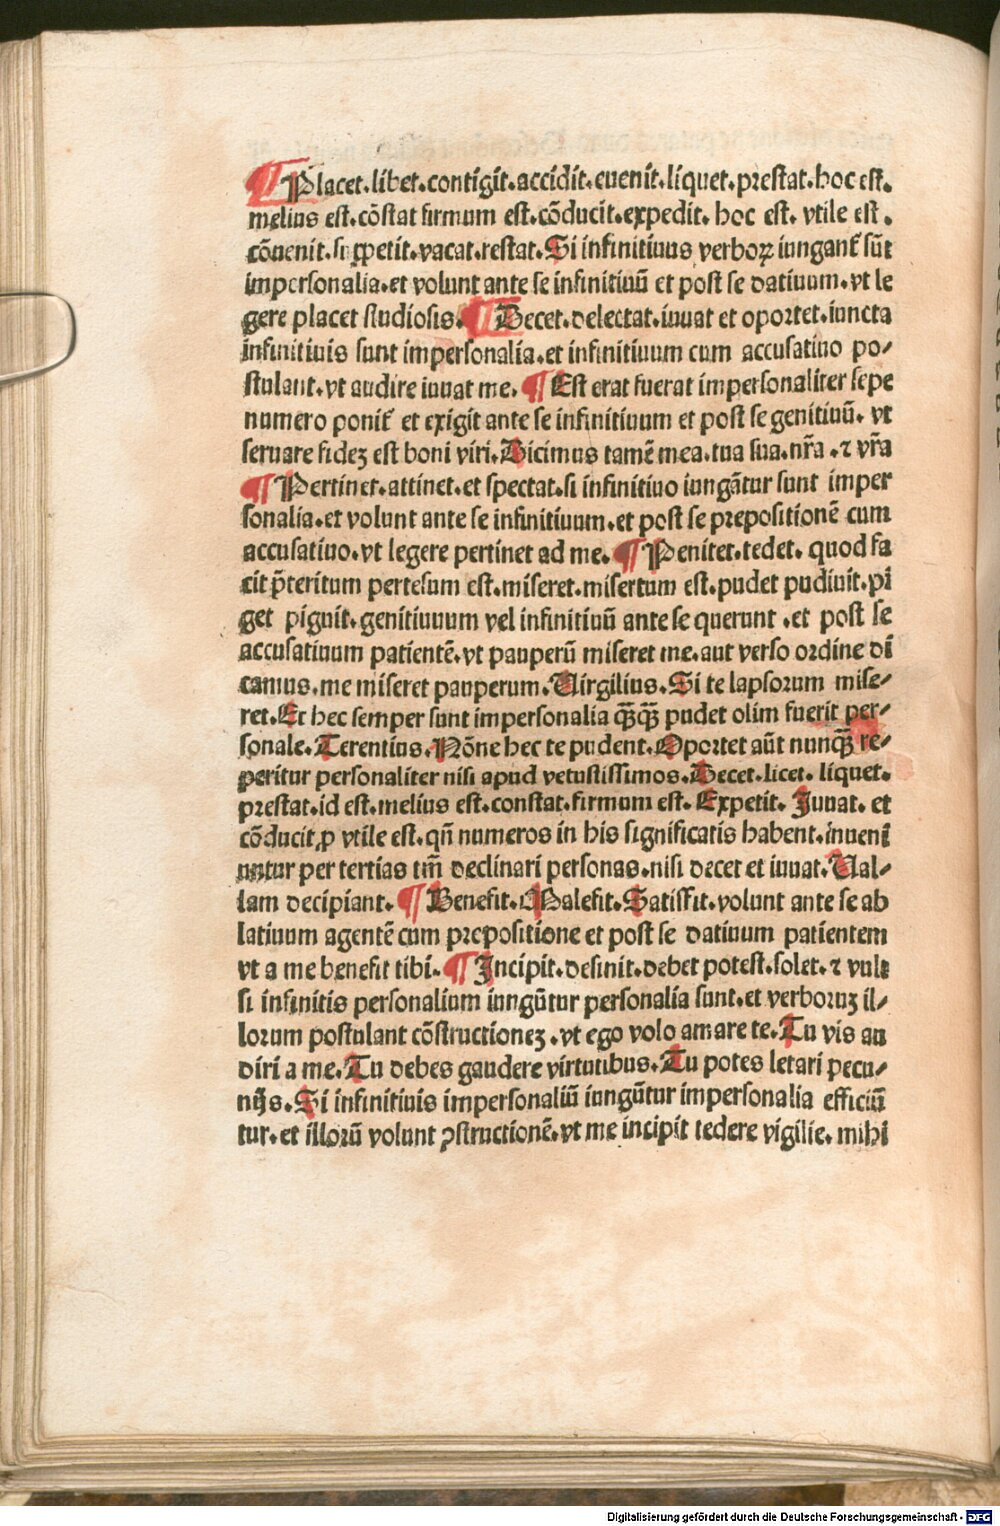 ¶ Placet.libet.contigit.accidit.euenit.liquet.prestat.hoc est.
melius est.cōstat firmum est.cōducit.expedit. hoc est. vtile est.
cōuenit.suꝓpetit.vacat.restat.Si infinitiuus verboꝝ iungant᷑ sūt
impersonalia.et volunt ante se infinitiuū et post se datiuum.vt le
gere placet studiosis. ¶ Decet.delectat.iuuat et oportet.iuncta
infinitiuis sunt impersonalia.et infinitiuum cum accusatiuo po/
stulant.vt audire iuuat me. ¶ Est erat fuerat impersonaliter sepe
numero ponit᷑ et exigit ante se infinitiuum et post se genitiuū. vt
seruare fideʒ est boni viri.Dicimus tamē mea.tua sua.nr̄a .⁊ vr̄a
¶ Pertinet.attinet.et spectat.si infinitiuo iungātur sunt imper
sonalia.et volunt ante se infinitiuum.et post se prepositionē cum
accusatiuo.vt legere pertinet ad me. ¶ Penitet.tedet. quod fa
cit p̄teritum pertesum est.miseret.misertum est.pudet puduit.pi
get piguit.genitiuuum vel infinitiuū ante se querunt .et post se
accusatiuum patientē.vt pauperū miseret me.aut verso ordine di
camus.me miseret pauperum.Uirgilius.Si te lapsorum mise/
ret.Et hec semper sunt impersonalia qꝫqꝫ pudet olim fuerit per/
sonale.Terentius.Nōne hec te pudent.Oportet aūt nunqꝫ re/
peritur personaliter nisi apud vetustissimos.Decet.licet. liquet.
prestat.id est.melius est.constat.firmum est. Expetit. Iuuat. et
cōducit ꝓ vtile est.qn̄ numeros in his significatis habent.inueni
untur per tertias tm̄ declinari personas.nisi decet et iuuat.Ual/
lam decipiant. ¶ Benefit.Malefit.Satisfit.volunt ante se ab
latiuum agentē cum prepositione et post se datiuum patientem
vt a me benefit tibi. ¶ Incipit.desinit.debet potest.solet.⁊ vult
si infinitis personalium iungūtur personalia sunt.et verboruʒ il/
lorum postulant cōstructioneʒ .vt ego volo amare te.Tu vis au
diri a me.Tu debes gaudere virtutibus.Tu potes letari pecu/
nijs.Si infinitiuis impersonaliū iungūtur impersonalia efficiū
tur.et illorū volunt ꝯstructionē.vt me incipit tedere vigilie. mihi
Digitalisierung gefördert durch die Deutsche Forschungsgemeinschaft - DFG